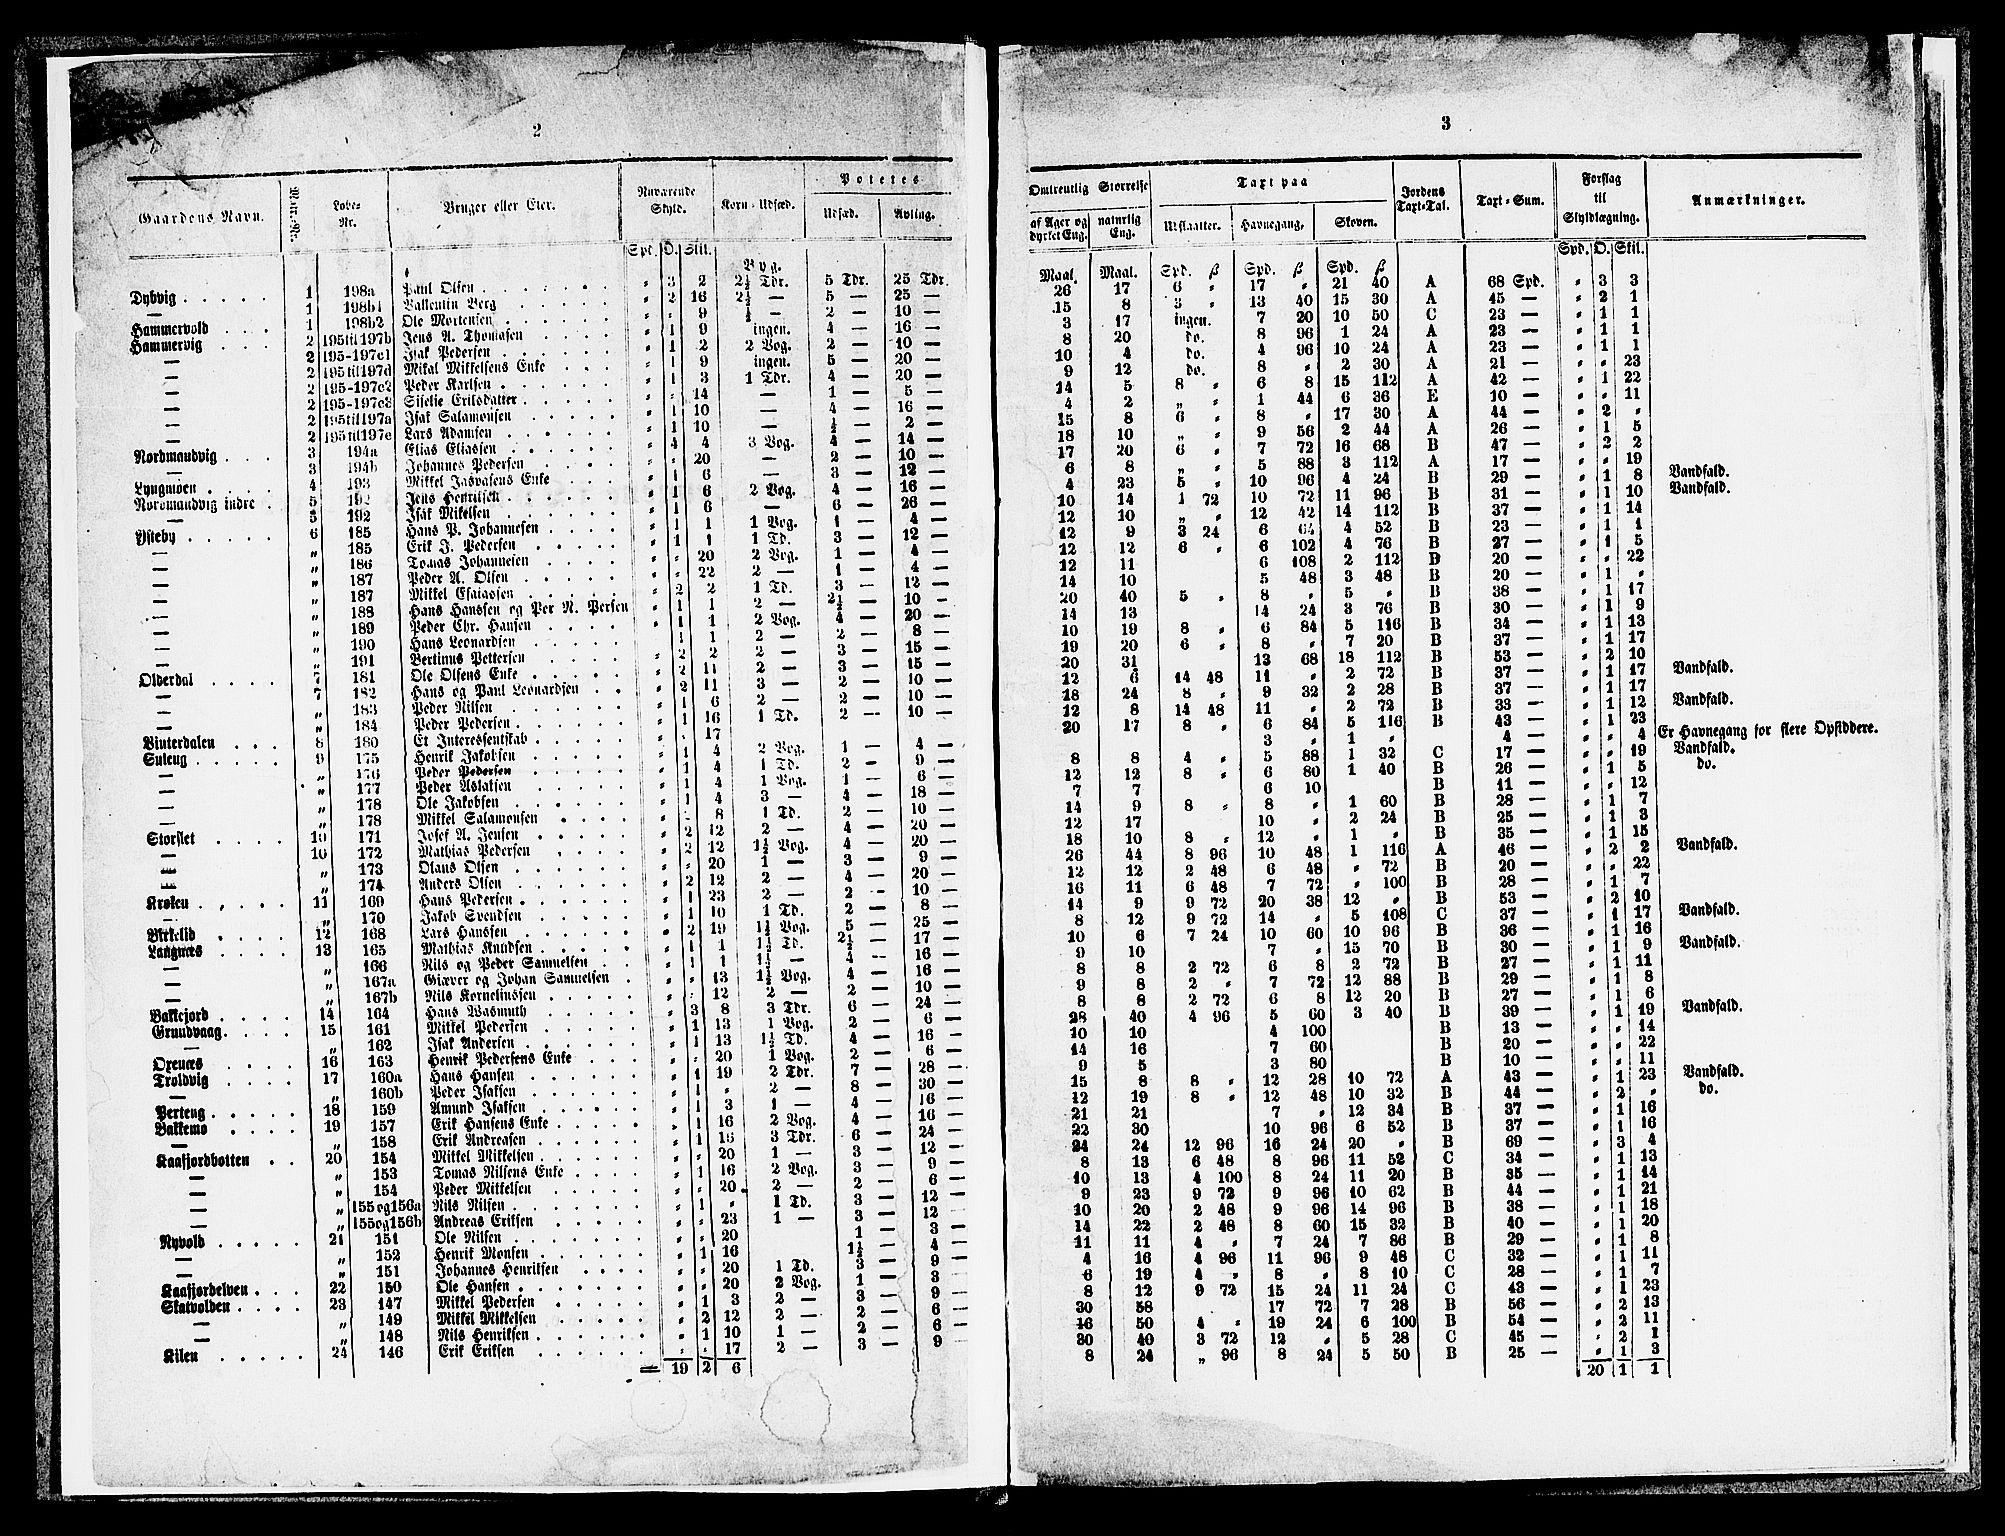 2
Gaardens Navn. Matr.-Nr. Løbe-Nr. Bruger eller Eier. Nuværende Skyld. Korn-Udsæd. Potetes Udsæd. Avling.
Spd. O. Skil.
Dybvig . . . . . 1 198a Paul Olsen 〃 3 2 2½ Tdr. 5 Tdr. 25 Tdr.
— 1 198b1 Vallentin Berg 〃 2 16 2½ — 5 — 25 —
Hammervold . . . 1 198b2 Ole Mortensen 〃 〃 9 ½ — 2 — 10 —
Hammervig . . . . 2 195til197b Jens A. Thomasen 〃 1 9 ingen. 4 — 16 —
— 2 195-197c1 Isak Pedersen 〃 1 2 2 Vog. 2 — 10 —
— 2 195til197d Mikal Mikkelsens Enke 〃 1 9 ingen. 5 — 20 —
— 2 195-197c2 Peder Karlsen 〃 1 3 1 Tdr. 4 — 20 —
— 2 195-197c3 Siselie Eriksdatter 〃 〃 14 — 1 — 5 —
— 2 195til197a Isak Salamonsen 〃 1 10 — 4 — 16 —
— 2 195til197e Lars Adamsen 〃 1 10 — ½ — 2 —
Nordmandvig . . . 3 194a Elias Eliassen 〃 4 4 3 Vog. 4 — 14 —
— 3 194b Johannes Pedersen 〃 〃 20 — 2 — 10 —
Lyngmoen . . . . 4 193 Mikkel Jasvasens Enke 〃 1 6 — 3 — 12 —
Nordmandvig indre . 5 192 Jens Henriksen 〃 1 6 2 Vog. 4 — 16 —
— 5 192 Isak Mikelsen 〃 1 6 — 6 — 26 —
Ysteby . . . . . 6 185 Hans P. Johannesen 〃 1 1 1 Vog. 1 — 4 —
— 〃 185 Erik J. Pedersen 〃 1 1 1 Td. 3 — 12 —
— 〃 186 Tomas Johannesen 〃 〃 20 2 Vog. 1 — 4 —
— 〃 187 Peder A. Olsen 〃 〃 22 2 — 1 — 4 —
— 〃 187 Mikkel Esaiassen 〃 2 2 1 Td. 3 — 12 —
— 〃 188 Hans Hanssen og Per N. Persen 〃 1 1 2 — 2½ — 10 —
— 〃 189 Peder Chr. Hansen 〃 1 1 2 Vog. 4 — 20 —
— 〃 190 Hans Leonardsen 〃 1 1 2 — 2 — 8 —
— 〃 191 Bertinus Pettersen 〃 2 2 2 — 3 — 15 —
Olderdal . . . . 7 181 Ole Olsens Enke 〃 2 11 2 — 3 — 15 —
— 7 182 Hans og Paul Leonardsen 〃 2 11 3 — 2 — 10 —
— 〃 183 Peder Nilsen 〃 1 6 2 — 2 — 10 —
— 〃 184 Peder Pedersen 〃 1 16 1 Td. 2 — 10 —
Vinterdalen . . . 8 180 Et Interessentskab 〃 〃 17
Suleng . . . . . 9 175 Henrik Jakobsen 〃 1 4 2 Vog. 1 — 4 —
— 〃 176 Peder Pedersen 〃 1 4 1 Td. 2 — 9 —
— 〃 177 Peder Aslaksen 〃 1 4 1 Vog. 1 — 6 —
— 〃 178 Ole Jakobsen 〃 1 4 3 — 4 — 18 —
— 〃 178 Mikkel Salamonsen 〃 〃 8 1 Td. 2 — 10 —
Storslet . . . . 10 171 Josef A. Jensen 〃 2 12 2 — 4 — 20 —
— 10 172 Mathias Pedersen 〃 2 12 1½ Vog. 4 — 20 —
— 〃 173 Olaus Olsen 〃 〃 20 1 — 3 — 9 —
— 〃 174 Anders Olsen 〃 2 12 2 — 4 — 20 —
Kroken . . . . . 11 169 Hans Pedersen 〃 1 23 2 — 2 — 10 —
— 〃 170 Jakob Svendsen 〃 1 10 1 Td. 2 — 8 —
Birkelid . . . . 12 168 Lars Hanssen 〃 2 19 1½ Vog. 5 — 25 —
Langnæs . . . . 13 165 Mathias Knudsen 〃 1 1 1½ Td. 2½ — 17 —
— 〃 166 Nils og Peder Samuelsen 〃 1 1 1½ — 4 — 16 —
— 〃 167a Giæver og Johan Samuelsen 〃 〃 13 1½ Vog. 4 — 16 —
— 〃 167b Nils Korneliussen 〃 〃 12 2 — 2 — 10 —
Bakkejord . . . . 14 164 Hans Wasmuth 〃 3 8 3 Tdr. 6 — 24 —
Grundvaag . . . . 15 161 Mikkel Pedersen 〃 1 13 1 Vog. 2 — 6 —
— 〃 162 Isak Andersen 〃 1 13 1½ Td. 4 — 16 —
Oxenæs . . . . . 16 163 Henrik Pedersens Enke 〃 〃 20 1 Vog. 2 — 6 —
Troldvig . . . . 17 160a Hans Hansen 〃 1 19 2 Tdr. 7 — 28 —
— 〃 160b Peder Isaksen 〃 1 〃 2 — 8 — 30 —
Perteng . . . . . 18 159 Amund Isaksen 〃 1 3 1 — 4 — 16 —
Bakkemo . . . . 19 157 Erik Hansens Enke 〃 1 16 2 Vog. 4 — 16 —
— 〃 158 Erik Andreasen 〃 1 16 3 Tdr. 6 — 24 —
Kaafjordbotten . . 20 154 Mikkel Mikkelsen 〃 〃 20 1 — 3 — 12 —
— 〃 153 Tomas Nilsens Enke 〃 1 16 2 Vog. 3 — 9 —
— 〃 154 Peder Mikkelsen 〃 〃 20 2 — 2 — 6 —
— 〃 155og156a Nils Nilsen 〃 1 〃 1 Td. 3 — 12 —
— 〃 155og156b Andreas Eriksen 〃 〃 23 1 — 3 — 12 —
Nyvold . . . . . 21 151 Ole Nilsen 〃 〃 20 1 — 3 —
— 〃 152 Henrik Monsen 〃 1 16 1½ — 4 —
— 〃 151 Johannes Henriksen 〃 〃 20 1 Td. 3 — 9 —
Kaafjordelven . . . 22 150 Ole Hansen 〃 〃 20 2 Vog. 1 — 3 —
Skatvolden . . . . 23 147 Mikkel Pedersen 〃 1 3 2 — 3 — 9 —
— 〃 149 Mikkel Mikkelsen 〃 2 12 2 — 2 — 6 —
— 〃 148 Nils Henriksen 〃 1 10 1 — 2 — 6 —
Kilen . . . . . 24 146 Erik Eriksen 〃 〃 17 2 — 3 — 9 —
= 19 2 6
3
Omtrentlig Størrelse af Ager og dyrket Eng. naturlig Eng. Taxt paa Udslaatter. Havnegang, Skoven. Jordens Taxt-Tal. Taxt-Sum. Forslag til Skyldlægning. Anmærkninger.
Spd. O. Skil.
Maal. Maal. Spd. ß Spd. ß Spd. ß
26 17 6 〃 17 〃 21 40 A 68 Spd. 〃 3 3
15 8 3 〃 13 40 15 30 A 45 — 〃 2 1
3 17 ingen. 7 20 10 50 C 23 — 〃 1 1
8 20 do. 8 96 1 24 A 23 — 〃 1 1
10 4 do. 4 96 10 24 A 23 — 〃 1 1
9 12 do. 8 〃 2 30 A 21 — 〃 〃 23
14 5 8 〃 6 8 15 112 A 42 — 〃 1 22
4 2 „ 〃 1 44 6 36 E 10 — 〃 〃 11
15 8 6 〃 8 〃 17 30 A 44 — 〃 2 〃
18 10 „ 〃 9 56 2 44 A 26 — 〃 1 5
17 20 6 〃 7 72 16 68 B 47 — 〃 2 2
6 8 „ 〃 5 88 3 112 A 17 — 〃 〃 19 Vandfald.
4 23 5 〃 10 96 4 24 B 29 — 〃 1 8 Vandfald.
10 14 1 72 10 72 11 96 B 31 — 〃 1 10
12 10 „ 〃 12 42 14 112 B 37 — 〃 1 14
12 9 3 24 6 64 4 52 B 23 — 〃 1 1
12 12 6 〃 6 102 4 76 B 27 — 〃 1 5
12 11 6 108 2 112 B 20 — 〃 〃 22
14 10 5 48 3 48 B 20 — 〃 1 〃
20 40 5 〃 8 〃 5 〃 B 38 — 〃 1 17
14 13 14 24 3 76 B 30 — 〃 1 9
10 19 8 〃 6 84 5 116 B 34 — 〃 1 13
19 20 6 〃 8 〃 7 20 B 37 — 〃 1 17
20 31 13 68 18 112 B 53 — 〃 2 10
12 6 14 48 11 〃 2 72 B 37 — 〃 1 17 Vandfald.
18 24 8 〃 9 32 2 28 B 37 — 〃 1 17
12 8 14 48 11 〃 2 72 B 33 — 〃 1 12 Vandfald.
20 17 8 〃 6 84 5 116 B 43 — 〃 1 23
3 〃 1 〃 4 — 〃 〃 4 Er Havnegang for flere Opsiddere.
8 8 4 〃 5 88 1 32 C 17 — 〃 〃 19 Vandfald.
12 12 8 〃 6 80 1 40 B 26 — 〃 1 5 do.
7 7 6 10 B 11 — 〃 〃 12
14 9 8 〃 8 〃 1 60 B 28 — 〃 1 7
12 17 10 〃 2 24 B 25 — 〃 1 3
18 10 8 〃 12 〃 1 〃 B 35 — 〃 1 15
26 44 8 96 10 48 1 116 A 46 — 〃 2 2 Vandfald.
12 12 2 48 6 48 〃 72 B 20 — 〃 〃 22
16 11 6 48 7 72 〃 100 B 28 — 〃 1 7
14 9 9 72 20 38 12 〃 B 53 — 〃 2 10
8 12 9 72 14 〃 5 108 C 37 — 〃 1 17 Vandfald.
10 6 7 24 10 60 10 96 B 36 — 〃 1 16
9 10 7 〃 15 70 B 30 — 〃 1 9 Vandfald.
8 8 2 72 6 8 2 72 B 27 — 〃 1 11
9 8 2 〃 7 72 12 88 B 29 — 〃 1 8
8 8 2 72 6 8 12 20 B 27 — 〃 1 6
28 40 4 96 5 60 3 40 B 39 — 〃 1 19 Vandfald.
10 10 4 100 B 13 — 〃 〃 14
14 16 7 60 B 20 — 〃 〃 22
9 5 3 80 B 10 — 〃 〃 11
15 8 8 〃 12 28 10 72 A 43 — 〃 1 23 Vandfald.
12 19 8 〃 12 48 10 32 B 44 — 〃 2 〃 do.
21 21 7 〃 12 34 B 37 — 〃 1 16
22 30 10 96 6 52 B 37 — 〃 1 16
24 24 12 96 16 24 20 〃 B 69 — 〃 3 4
8 13 6 48 8 96 11 52 C 34 — 〃 1 13
10 13 4 100 8 24 11 20 B 35 — 〃 1 14
9 23 9 72 9 96 10 62 B 44 — 〃 1 21
10 20 2 48 9 96 14 96 B 38 — 〃 1 18
14 22 2 48 8 60 15 32 B 40 — 〃 1 20
11 11 4 〃 7 24 7 86 B 29 — 〃 1 8
4 16 4 96 11 96 9 48 C 32 — 〃 1 11
6 19 4 〃 8 〃 8 10 C 28 — 〃 1 7
8 12 9 72 15 24 11 24 C 43 — 〃 1 23
30 58 17 72 7 28 B 56 — 〃 2 13
16 50 4 〃 19 24 6 100 B 54 — 〃 2 11
30 40 3 72 12 〃 5 28 C 45 — 〃 2 1
8 24 „ 96 8 24 5 50 B 25 — 〃 1 3
20 1 1